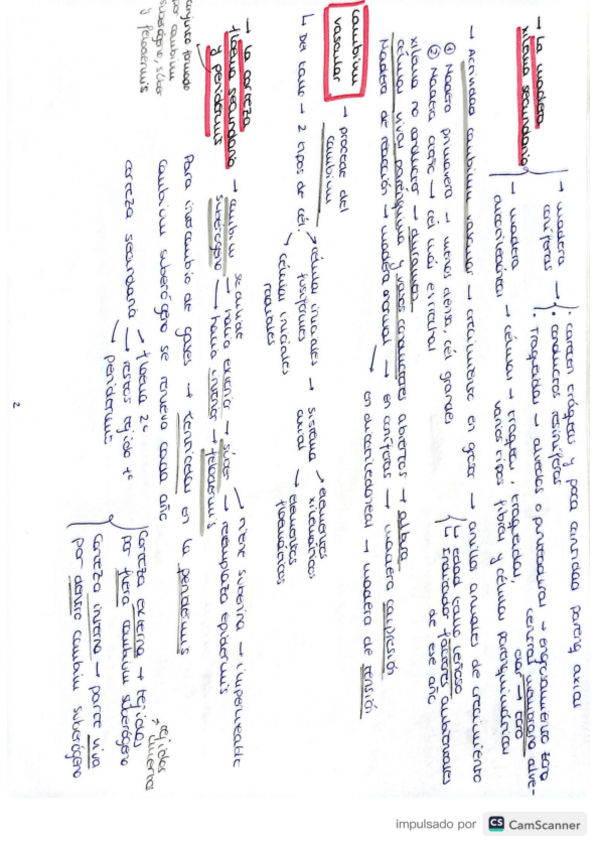 → La madera
xilema secundario
→ madera coníferas →
· carecen tráqueas y poca cantidad parenq. axial
· conductos resiníferos
· Traqueidas → alvedos o punteaduras → engrosamiento zona central membrana alveolar → toro
→ madera dicotiledóneas → células → tráqueas, traqueidas,
varios tipos fibras y células parenquimáticas
→ Actividad cambium vascular → crecimiento en grosor → anillos anuales de crecimiento
↳ edad tallo leñoso
↳ Indicador factores ambientales de ese año
① Madera primavera → menos densa, cél grandes
② Madera otoño → cél más estrechas
xilema no conductor → duramen
células vivas parénquima y vasos conductores abiertos → albura
Madera de reacción → madera anormal → en coníferas → madera compresión
→ en dicotiledóneas → madera de tensión
cambium
vascular
→ procede del
cambium
↳ Del tallo → 2 tipos de cél.
células iniciales
fusiformes
→ sistema
axial
→ elementos
xilemáticos
→ elementos
floemáticos
→ células iniciales
radiales
→ La corteza
floema secundario
y peridermis
conjunto formado
por cambium
suberógeno, súber
y felodermis
→ cambium
suberógeno
se divide
→ hacia exterior → súber → tiene suberina → impermeable
→ reemplaza epidermis
→ hacia interior → felodermis
Para intercambio de gases → lenticelas en la peridermis
cambium suberógeno se renueva cada año
corteza secundaria
→ floema 2º
→ restos tejido 1º
→ peridermis
corteza externa → tejidos
por fuera cambium suberógeno
→ tejidos muertos
corteza interna → parte viva
por dentro cambium suberógeno
2
impulsado por CS CamScanner